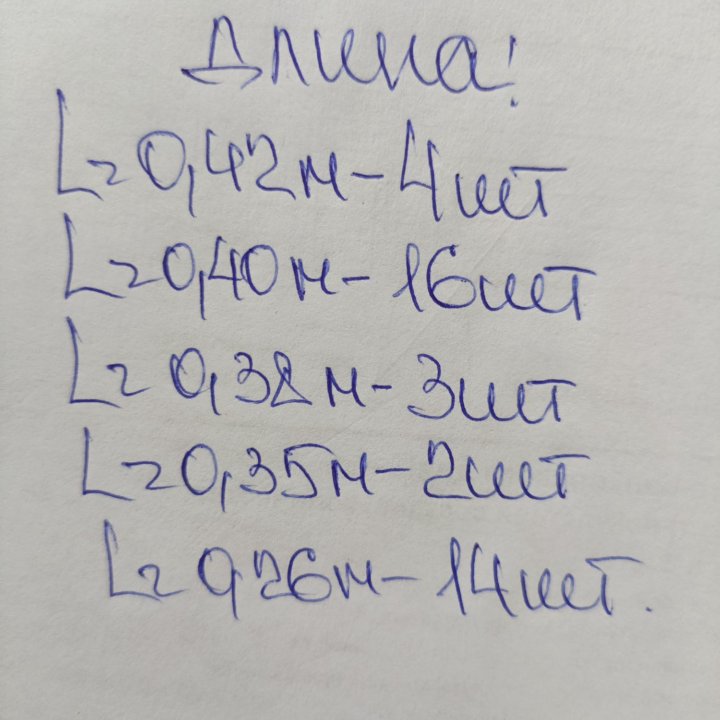 Длина!
L=0,42м-4шт
L=0,40м-16шт
L=0,38м-3шт
L=0,35м-2шт
L=0,26м-14шт.